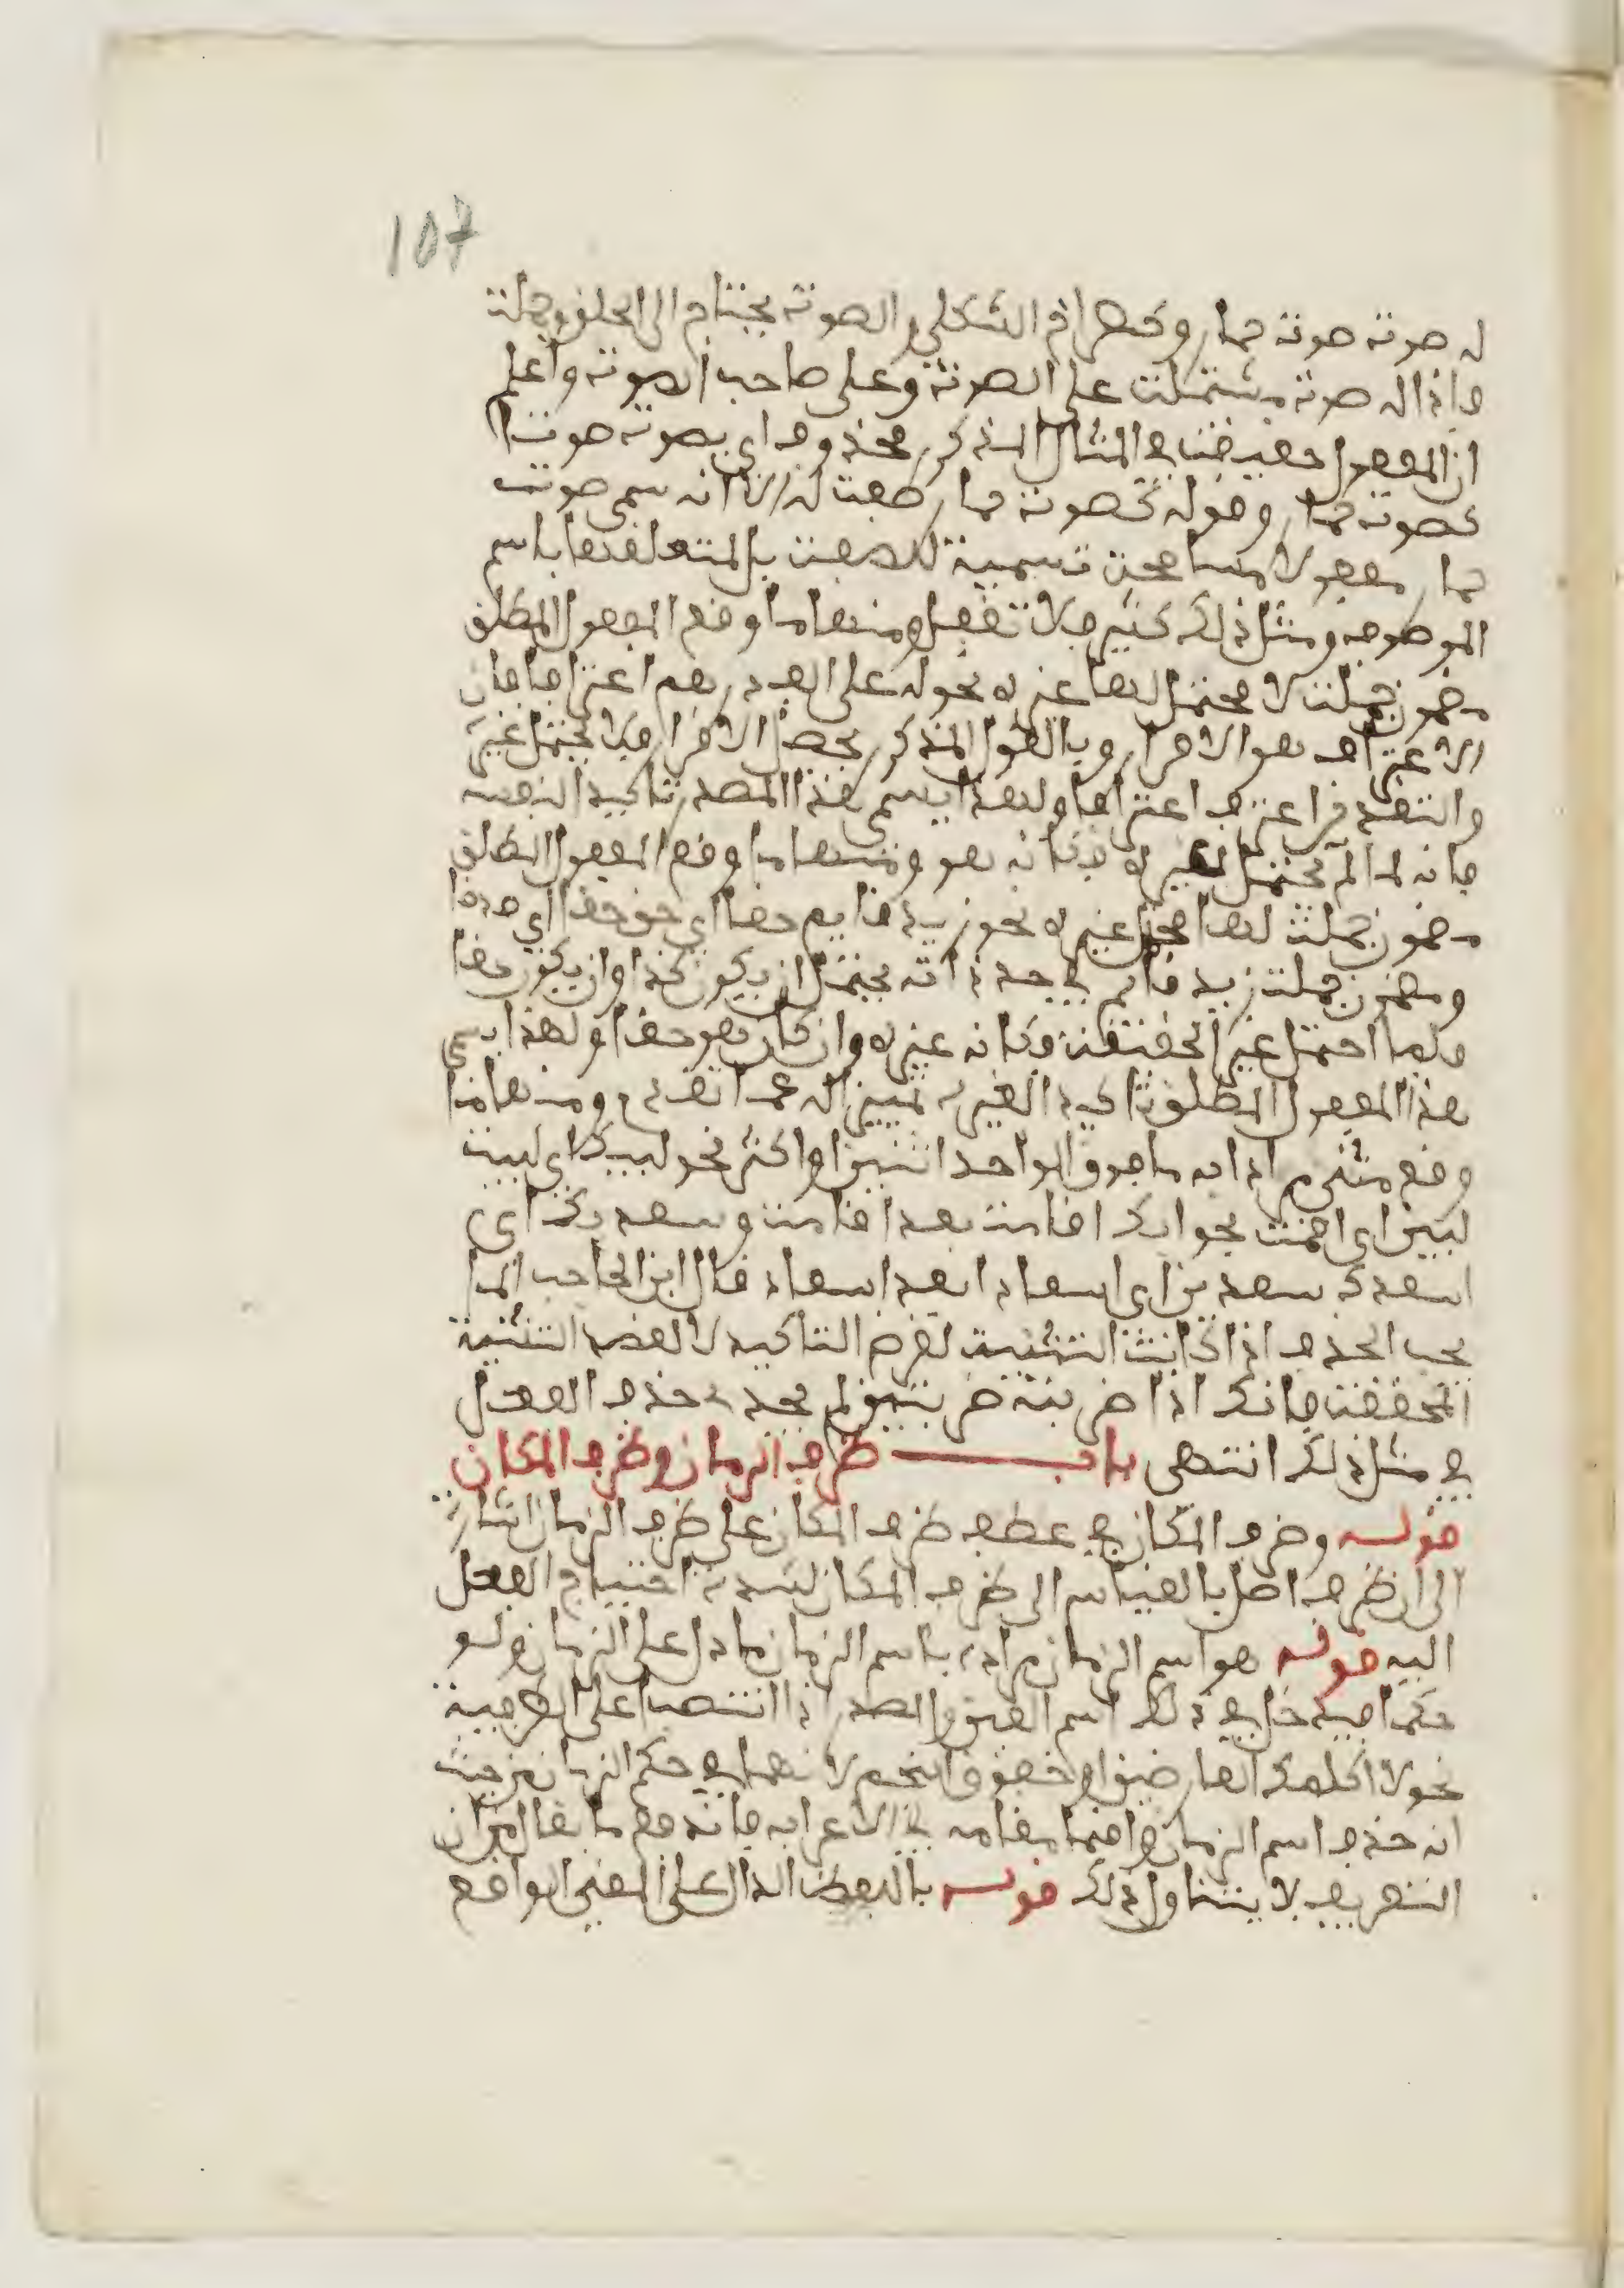 107
له صوت صوت حمار وكصراخ الثكلى والصوت يحتاج الى الحلق وجملة
فاذا له صوت مشتملة على الصوت وعلى صاحب الصوت واعلم
ان المفعول حقيقة في المثال المذكر محذوف اي يصوت صوتا
كصوت حمار وقوله كصوت حمار صفة له الا انه سمى صوت
حمار مفعولا مسامحة تسمية للصفة بل المتعلقها باسم
الموصوف ومثل ذلك كثير فلا تغفل ومنها ما وقع المفعول المطلق
مضمون جملة لا محتمل لها غيره نحو له على الف درهم اعترافا فان
الاعتراف هو الاقرار وبالقول المذكر يحصل الاقرار فلا يحتمل غيره
والتقدير اعترف اعترافا ولهذا يسمى هذا المصدر تاكيد النفسه
فانه لما لم يحتمل لغيره فكانه هو ومنها ما وقع المفعول المطلق
مضمون جملة لها محتمل غيره نحو زيد قايم حقا اي حق حقا اي صدقا
ومضمون جملة زيد قايم في حد ذاته يحتمل ان يكون كذا وان يكون حقا
ولما احتمل غير الحقيقة فكانه غيره وان كان هو حقا ولهذا يسمى
هذا المفعول المطلق تاكيد الغيره تمييز اله عما تقدم ومنها ما
وقع مثنى مراد ابه ما فوق الواحد اثنين او اكثر نحو لبيك اي لبيت
لبين اي اقمت بجوابك اقامت بعد اقامت وسعديك اي
اسعدك سعدين اي اسعاد ابعد اسعاد قال ابن الحاجب انما
يجب الحذف اذا كانت التثنية لغرض التاكيد لا لقصد التثنية
المحققة فانك اذا ضربته ضربتين لم يجد في حذف الفعل
في مثل ذلك انتهى باب ظرف الزمان وظرف المكان
قوله وضرف المكان في عطف ظرف المكان على ظرف الزمان اشارة
الى ان ظرف اصل بالقياس الى ظرف المكان لشدة احتياج الفعل
اليه قوله هو اسم الزمان مراده باسم الزمان ما دل على الزمان ولو
حكما فيدخل في ذلك اسم العين والمصدر اذا انتصبا على الظرفية
نحو لا اكلمك القارضين او خفوق النجم لانهما في حكم الزمان من حيث
انه حذف اسم الزمان واقيما مقامه في الاعراب فاندفع ما يقال من ان
التعريف لا يتناول ذلك قوله باللفظ الدال على المعنى الواقع